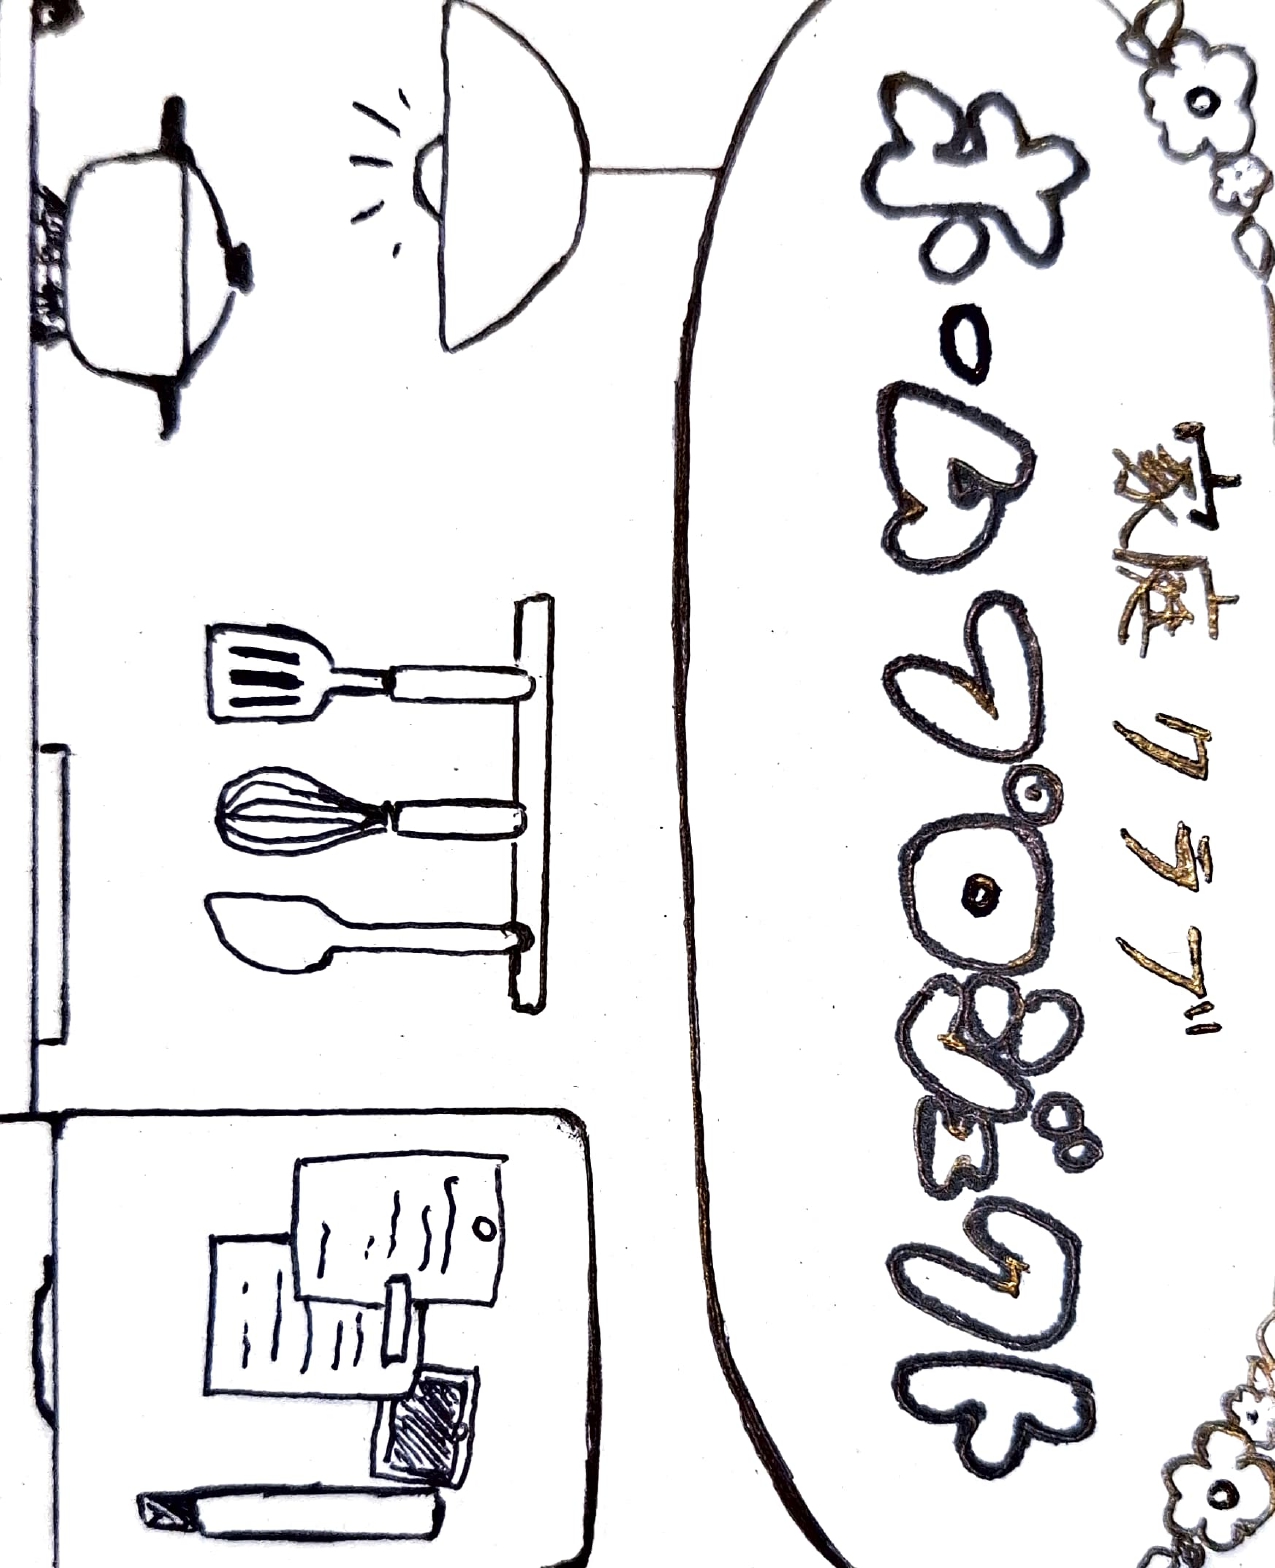 家庭クラブ
ホームプロジェクト